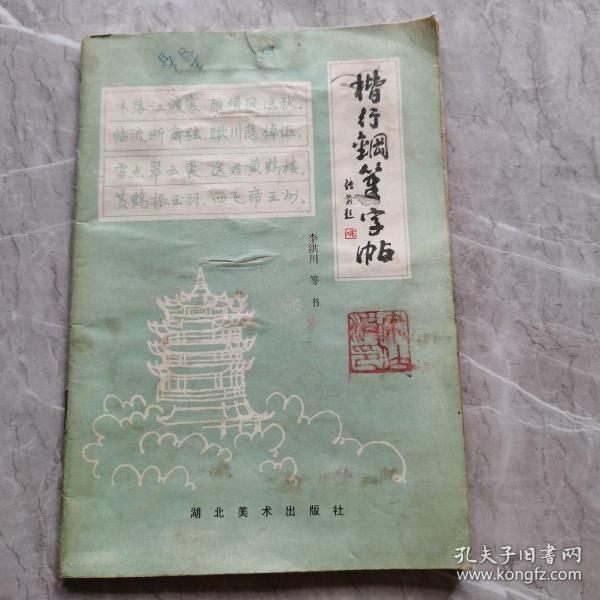 楷行鋼筆字帖
木落江渡寒 雁横风送秋
临流断商弦 瞰川悲棹讴
雪点翠云裘 送君黄鹤楼
黄鹤振玉羽 西飞帝王州
李洪川 等 书
湖北美术出版社
孔夫子旧书网
www.kongfz.com